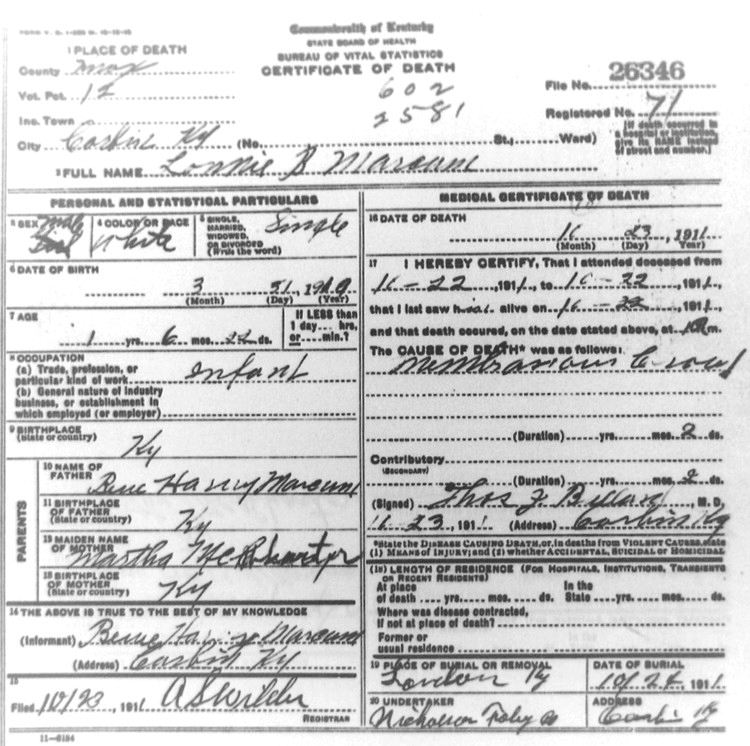 Commonwealth of Kentucky
STATE BOARD OF HEALTH
BUREAU OF VITAL STATISTICS
CERTIFICATE OF DEATH
1 PLACE OF DEATH
County Knox
Vot. Pct. 12
Inc. Town
City Corbin Ky (No. St.; Ward)
602
2581
File No. 26346
Registered No. 71
[If death occurred in a hospital or institution, give its NAME instead of street and number.]
2 FULL NAME Lonnie B Marcum
PERSONAL AND STATISTICAL PARTICULARS
3 SEX Male
4 COLOR OR RACE White
5 SINGLE, MARRIED, WIDOWED, OR DIVORCED (Write the word) Single
6 DATE OF BIRTH
3 (Month) (Day) (Year)
7 AGE
1 yrs. 6 mos. 22 ds.
If LESS than 1 day hrs. or min.?
8 OCCUPATION
(a) Trade, profession, or particular kind of work Infant
(b) General nature of industry business, or establishment in which employed (or employer)
9 BIRTHPLACE (State or country) Ky
PARENTS
10 NAME OF FATHER Harvey Marcum
11 BIRTHPLACE OF FATHER (State or country) Ky
12 MAIDEN NAME OF MOTHER Martha
13 BIRTHPLACE OF MOTHER (State or country) Ky
14 THE ABOVE IS TRUE TO THE BEST OF MY KNOWLEDGE
(Informant) Marcum
(Address) Corbin Ky
15
Filed 10/23, 1911 A S Wilder
REGISTRAR
11-6184
MEDICAL CERTIFICATE OF DEATH
16 DATE OF DEATH
10 23, 1911
(Month) (Day) (Year)
17 I HEREBY CERTIFY, That I attended deceased from
10-22, 1911, to 10-22, 1911,
that I last saw him alive on 10-22, 1911,
and that death occured, on the date stated above, at m.
The CAUSE OF DEATH* was as follows:
Membranous Croup
(Duration) yrs. mos. 2 ds.
Contributory
(SECONDARY)
(Duration) yrs. mos. 2 ds.
(Signed) Thos M. D.
10 23, 1911 (Address) Corbin Ky
*State the DISEASE CAUSING DEATH, or, in deaths from VIOLENT CAUSES, state
(1) MEANS OF INJURY; and (2) whether ACCIDENTAL, SUICIDAL OR HOMICIDAL
(18) LENGTH OF RESIDENCE (FOR HOSPITALS, INSTITUTIONS, TRANSIENTS OR RECENT RESIDENTS)
At place of death yrs. mos. ds. In the State yrs. mos. ds.
Where was disease contracted, If not at place of death?
Former or usual residence
19 PLACE OF BURIAL OR REMOVAL London Ky
DATE OF BURIAL 10/24, 1911
20 UNDERTAKER Nicholson
ADDRESS Corbin Ky